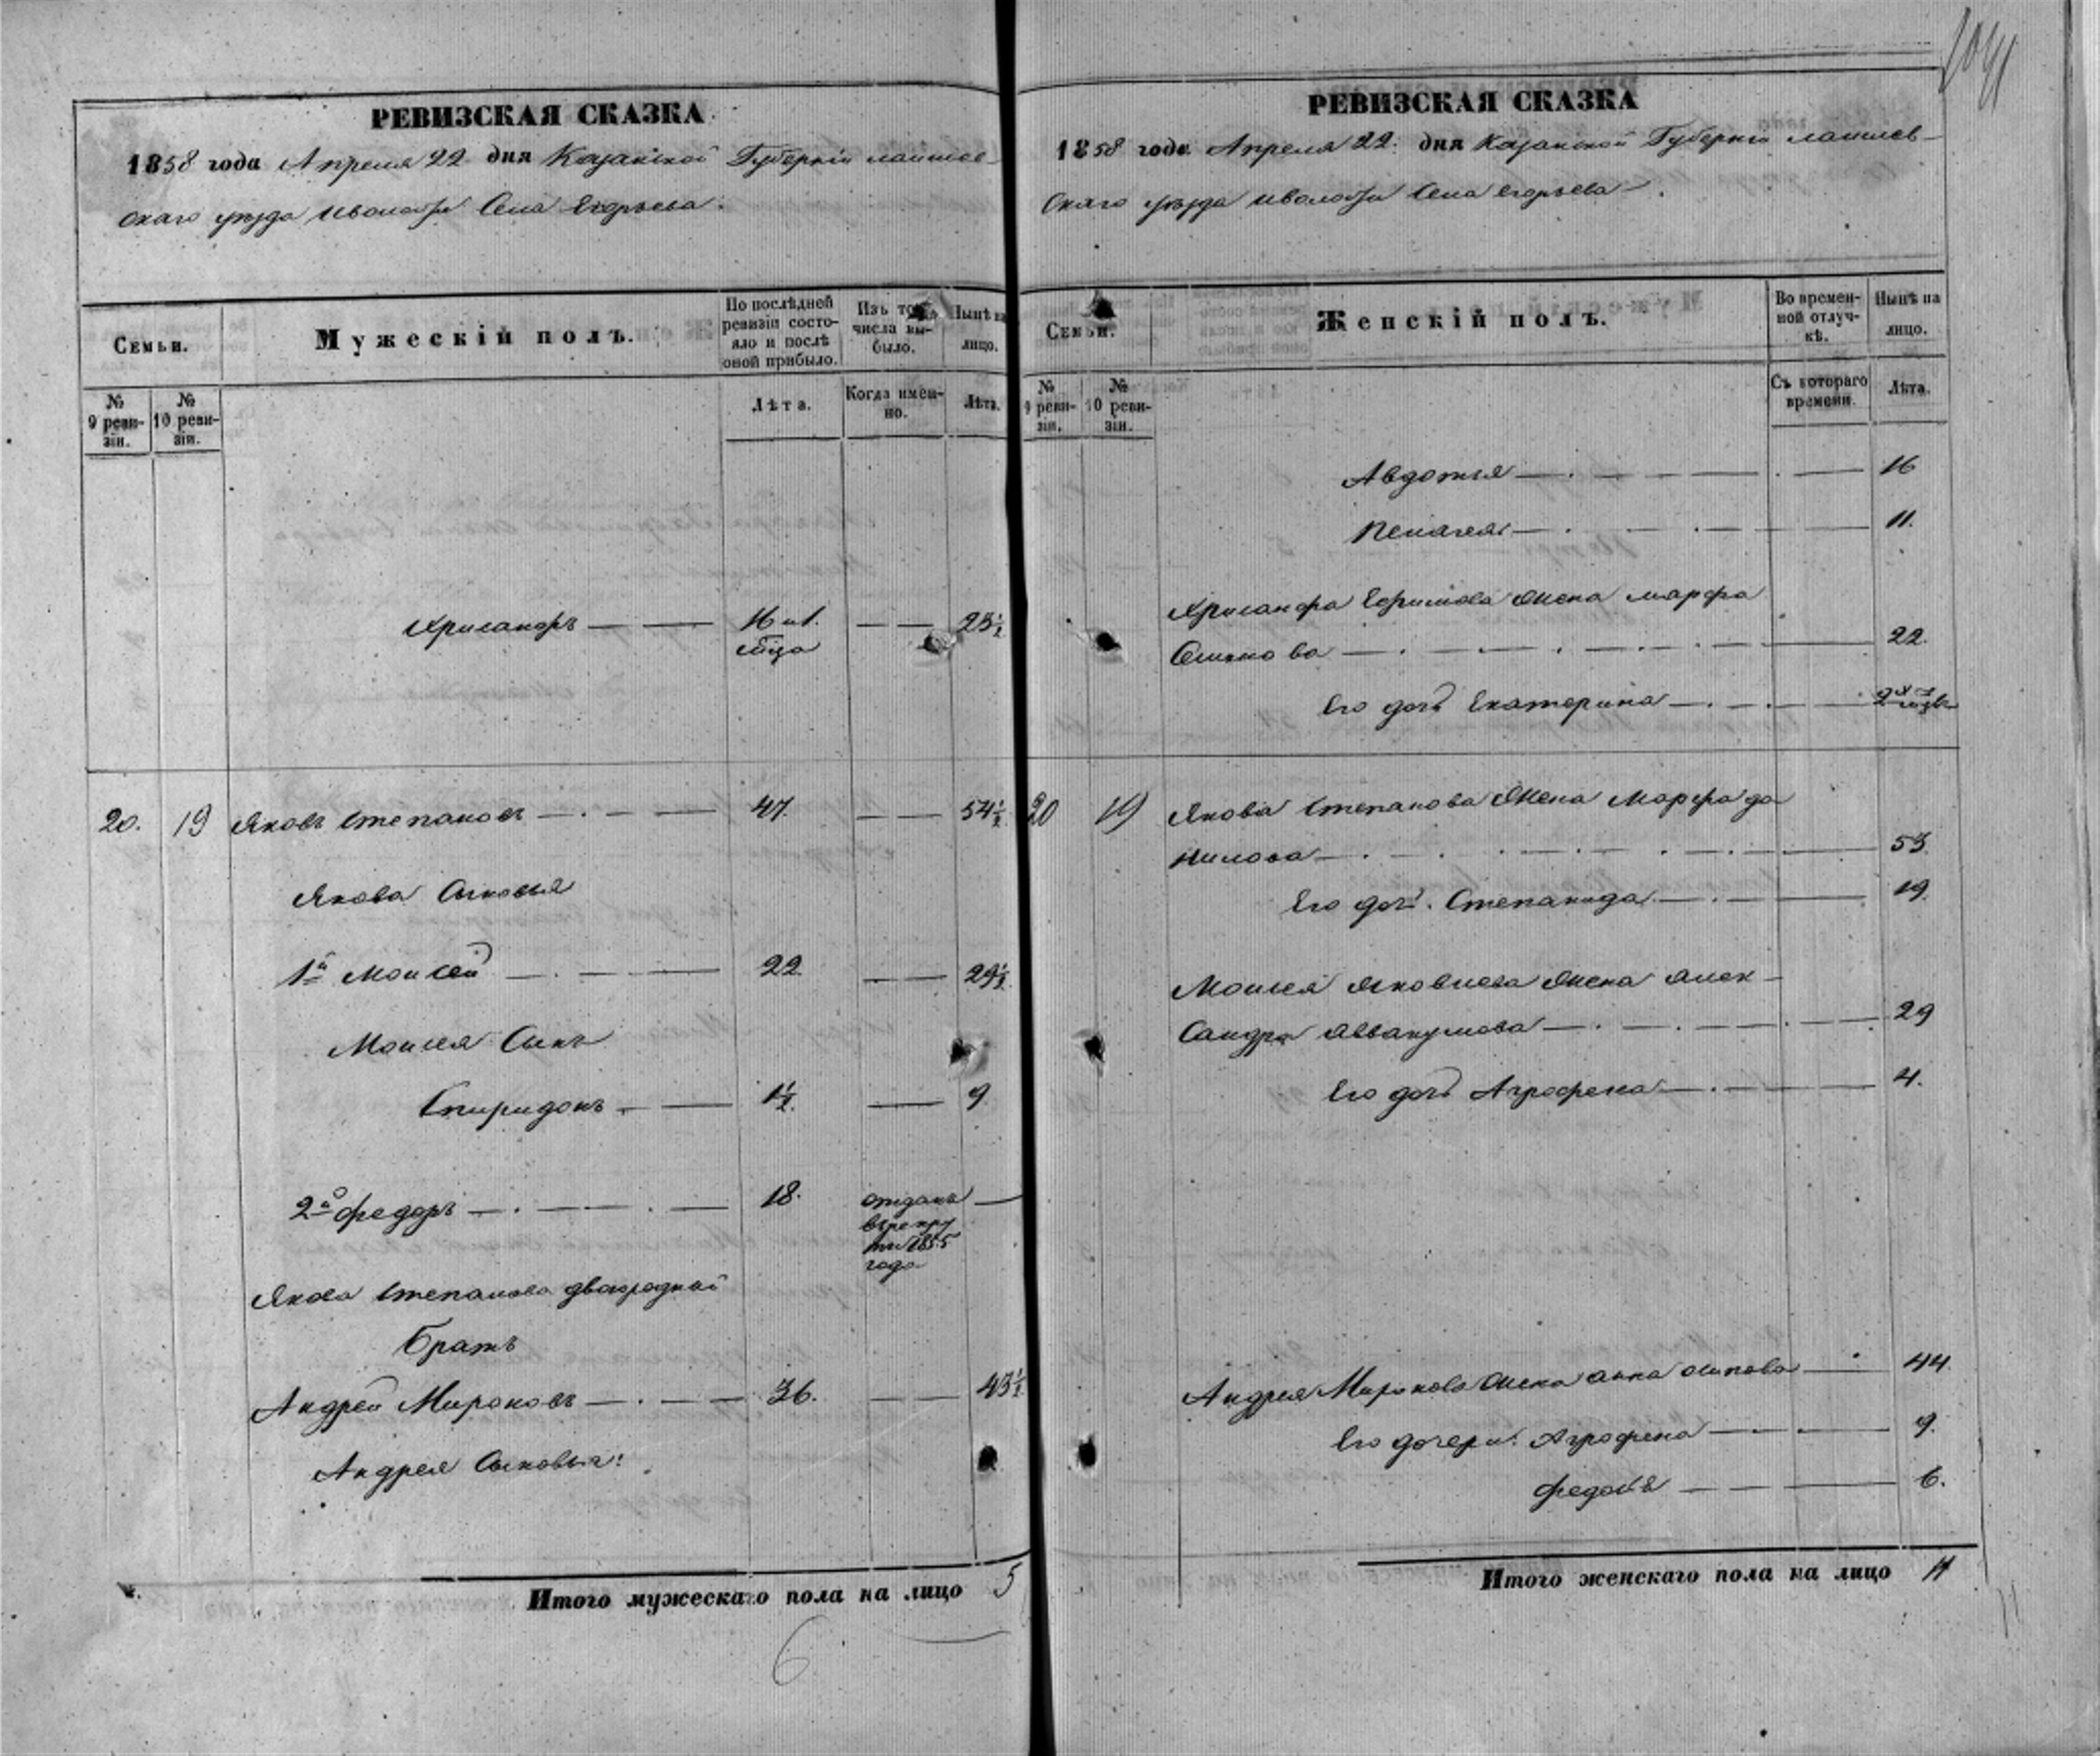 РЕВИЗСКАЯ СКАЗКА
1858 года Апреля 22 дня Казанской Губерніи лаишев-
скаго уезда и волости Села Егорьева.
Семьи.
Мужескій полъ.
По послѣдней ревизіи состояло и послѣ оной прибыло.
Изъ того числа выбыло.
Нынѣ на лицо.
№ 9 ревизіи.
№ 10 ревизіи.
Лѣта.
Когда именно.
Лѣта.
Хрисанфъ 16 23½
20. 19 Яковъ Степановъ 47. 54½
Якова Сыновья
1й Моисей 22 29½
Моисея Сынъ
Спиридонъ 1½ 9
2й Федоръ 18. отданъ
в рекру
ты 1855
года
Якова Степанова двоюродный
Братъ
Андрей Мироновъ 36. 43½
Андрея Сыновья:
Итого мужескаго пола на лицо 5
6
1041
РЕВИЗСКАЯ СКАЗКА
1858 года Апреля 22. дня Казанской Губерніи лаишев-
скаго уезда и волости Села Егорьева.
Семьи.
Женскій полъ.
Во временной отлучкѣ.
Нынѣ на лицо.
№ 9 ревизіи.
№ 10 ревизіи.
Съ котораго времени.
Лѣта.
Авдотья 16
Пелагея 11.
Хрисанфа Ефимова жена марфа
22.
Его дочь Екатерина
20 19 Якова Степанова Жена Марфа да
нилова 53
Его дочь. Степанида 19.
Моисея Яковлева жена Алек-
сандра Аввакумова 29
Его дочь Агрофена 4.
Андрея Миронова жена анна осипова 44.
Его дочери: Агрофена 9.
Федосья 6.
Итого женскаго пола на лицо 11